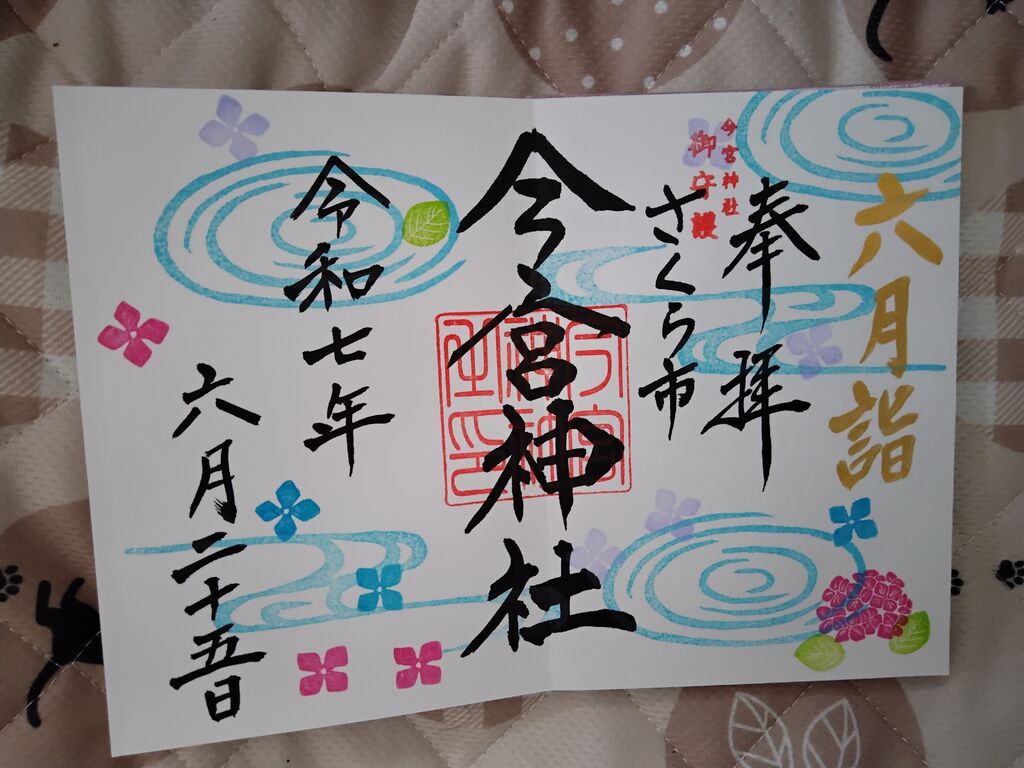 六月詣
奉拝
今宮神社
御守護
さくら市
今宮神社
今宮神社印
令和七年
六月二十五日